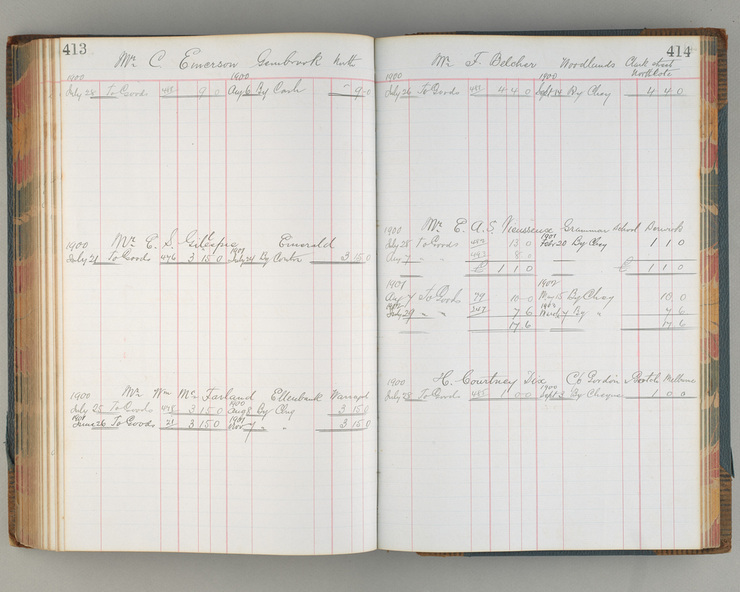 413
Mr C. Emerson Gembrook Nth
1900 1900
July 28 To Goods 9 0 Aug 6 By Cash 9 0
1900 Mr E. S. Gillespie Emerald
July 21 To Goods 476 3 15 0 July 21 By Contra 3 15 0
1900 Mr Wm Mc Farland Ellenbank Warragul
July 25 To Goods 478 3 15 0 1900 Aug 8 By Chq 3 15 0
1901 June 26 To Goods 21 3 15 0 1901 Nov 7 " " 3 15 0
414
Mr F. Belcher Woodlands Clark street
Northcote
1900 1900
July 26 To Goods 481 4 4 0 Sept 14 By Chq 4 4 0
1900 Mr E. A. S. Vieusseux Grammar School Berwick
July 28 To Goods 13 0 1901 Feb 20 By Chq 1 1 0
Aug 7 " " 8 0
£ 1 1 0 £ 1 1 0
1901 1902
Aug 7 To Goods 79 10 0 May 5 By Chq 10 0
July 29 " " 247 7 6 By " 7 6
17 6 17 6
1900 H. Courtney Dix C/o Gordon & Gotch Melbourne
July 28 To Goods 485 1 0 0 1900 Sept 3 By Cheque 1 0 0